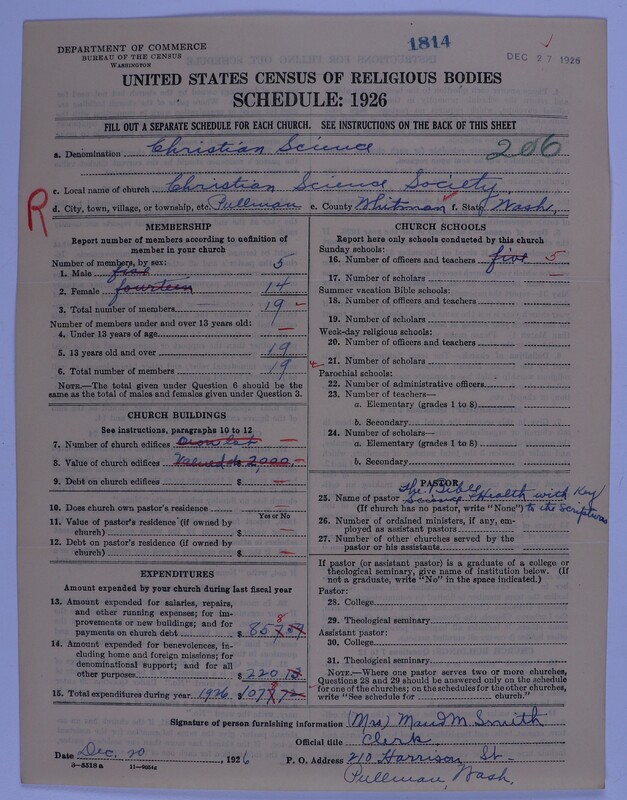 1814
DEC 27 1926
DEPARTMENT OF COMMERCE
BUREAU OF THE CENSUS
WASHINGTON
UNITED STATES CENSUS OF RELIGIOUS BODIES
SCHEDULE: 1926
FILL OUT A SEPARATE SCHEDULE FOR EACH CHURCH. SEE INSTRUCTIONS ON THE BACK OF THIS SHEET
a. Denomination Christian Science 206
c. Local name of church Christian Science Society
R
d. City, town, village, or township, etc. Pullman e. County Whitman f. State Wash,
MEMBERSHIP
Report number of members according to definition of
member in your church
Number of members, by sex:
1. Male five 5
2. Female fourteen 14
3. Total number of members 19
Number of members under and over 13 years old:
4. Under 13 years of age
5. 13 years old and over 19
6. Total number of members 19
NOTE.—The total given under Question 6 should be
same as the total of males and females given under Question 3.
CHURCH BUILDINGS
See instructions, paragraphs 10 to 12
7. Number of church edifices
8. Value of church edifices Valued at 2,000
9. Debt on church edifices $
10. Does church own pastor's residence
Yes or No
11. Value of pastor's residence (if owned by
church) $
12. Debt on pastor's residence (if owned by
church) $
EXPENDITURES
Amount expended by your church during last fiscal year
13. Amount expended for salaries, repairs,
and other running expenses; for im-
provements or new buildings; and for
payments on church debt $
14. Amount expended for benevolences,
including home and foreign missions; for
denominational support; and for all
other purposes $ 220
15. Total expenditures during year 1926 $
CHURCH SCHOOLS
Report here only schools conducted by this church
Sunday schools:
16. Number of officers and teachers five 5
17. Number of scholars
Summer vacation Bible schools:
18. Number of officers and teachers
19. Number of scholars
Week-day religious schools:
20. Number of officers and teachers
21. Number of scholars
Parochial schools:
22. Number of administrative officers
23. Number of teachers—
a. Elementary (grades 1 to 8)
b. Secondary
24. Number of scholars—
a. Elementary (grades 1 to 8)
b. Secondary
PASTOR
The Bible
25. Name of pastor Science & Health with Key
(If church has no pastor, write "None") to the Scriptures
26. Number of ordained ministers, if any, em-
ployed as assistant pastors
27. Number of other churches served by the
pastor or his assistants
If pastor (or assistant pastor) is a graduate of a college or
theological seminary, give name of institution below. (If
not a graduate, write "No" in the space indicated.)
Pastor:
28. College
29. Theological seminary
Assistant pastor:
30. College
31. Theological seminary
NOTE.—Where one pastor serves two or more churches,
Questions 28 and 29 should be answered only on the schedule
for one of the churches; on the schedules for the other churches,
write "See schedule for church."
Signature of person furnishing information (Mrs) Maud M. Smith
Official title Clerk
Date Dec, 20, 1926 P. O. Address 210 Harrison St-
9-5518a 11-9034a
Pullman, Wash,